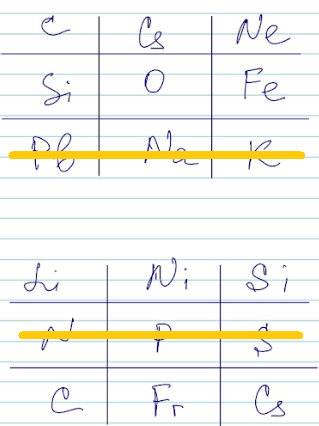 C Cs Ne
Si O Fe
Pb Na K
Li Ni Si
N P S
C Fr Cs